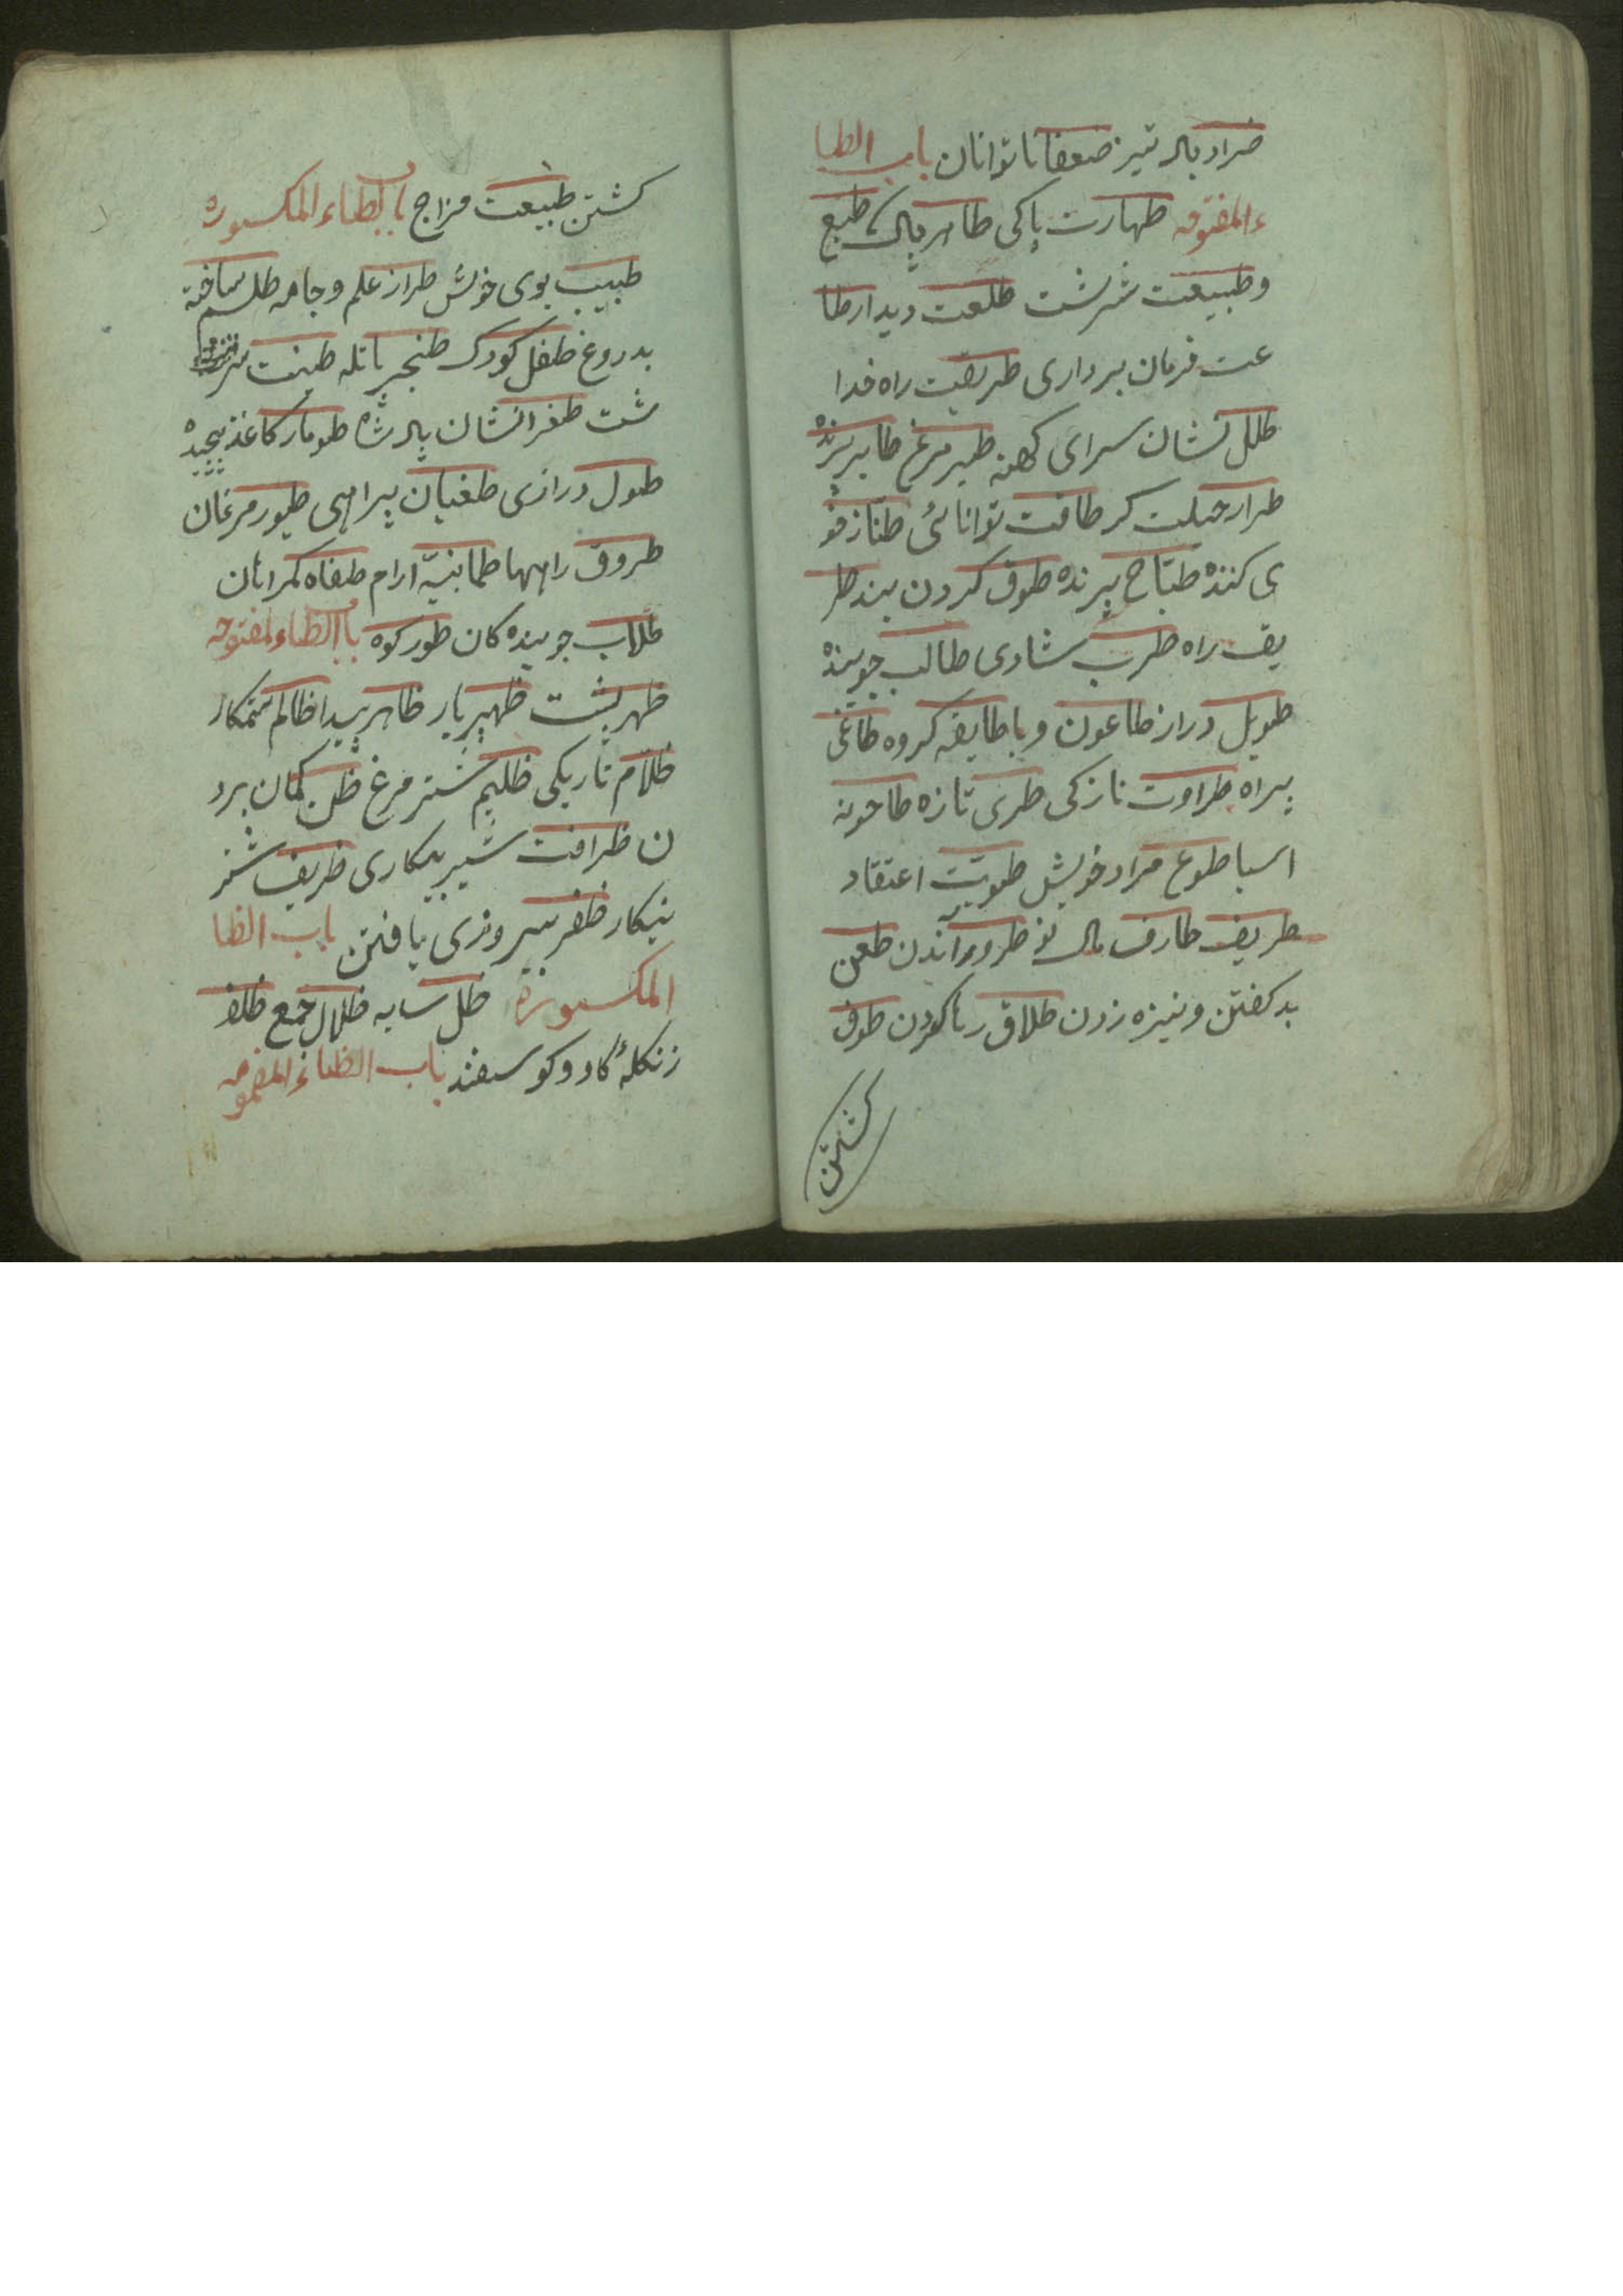 ضراد باد تیز ضعفا ناتوانان باب الطا
ء المفتوحه طهارت پاکی طاهر پاک طبع
و طبیعت سرشت طلعت دیدار طا
عت فرمان برداری طریقت راه خدا
طلل نشان سرای کهنه طیر مرغ طایر پرنده
طرار حیلت کر طاقت توانائی طناز فو
ی کننده طباخ پزنده طوق کردن بند طر
یق راه طرب شادی طالب جوینده
طویل دراز طاعون وبا طایفه کروه طاغی
بیراه طراوت نازکی طری تازه طاحونه
اسیا طوع مراد خویش طویت اعتقاد
طریف طارف مال نو طرد راندن طعن
بد کفتن و نیزه زدن طلاق رها کردن طوف
کشتن
کشتن طبیعت مزاج باب الطاء المکسوره
طیب بوی خوش طراز علم و جامه طلسم ساخته
بدروغ طفل کودک طنجیر پاتله طینت سر
شت طغرا نشان پادشاه طومار کاغذ پیچیده
طول درازی طغیان بیراهی طیور مرغان
طروق راهها طمانینه ارام طغاه کمراهان
طلاب جوینده کان طور کوه باب الظاء المفتوحه
ظهر پشت ظهیر یار ظاهر پیدا ظالم ستمکار
ظلام تاریکی ظلیم شتر مرغ ظن کمان برد
ن ظرافت شیرینکاری ظریف شیر
ینکار ظفر پیروزی یافتن باب الظا
المکسورة ظل سایه ظلال جمع ظلف
زنکلهٔ کاو و کوسفند باب الظاء المضمومه